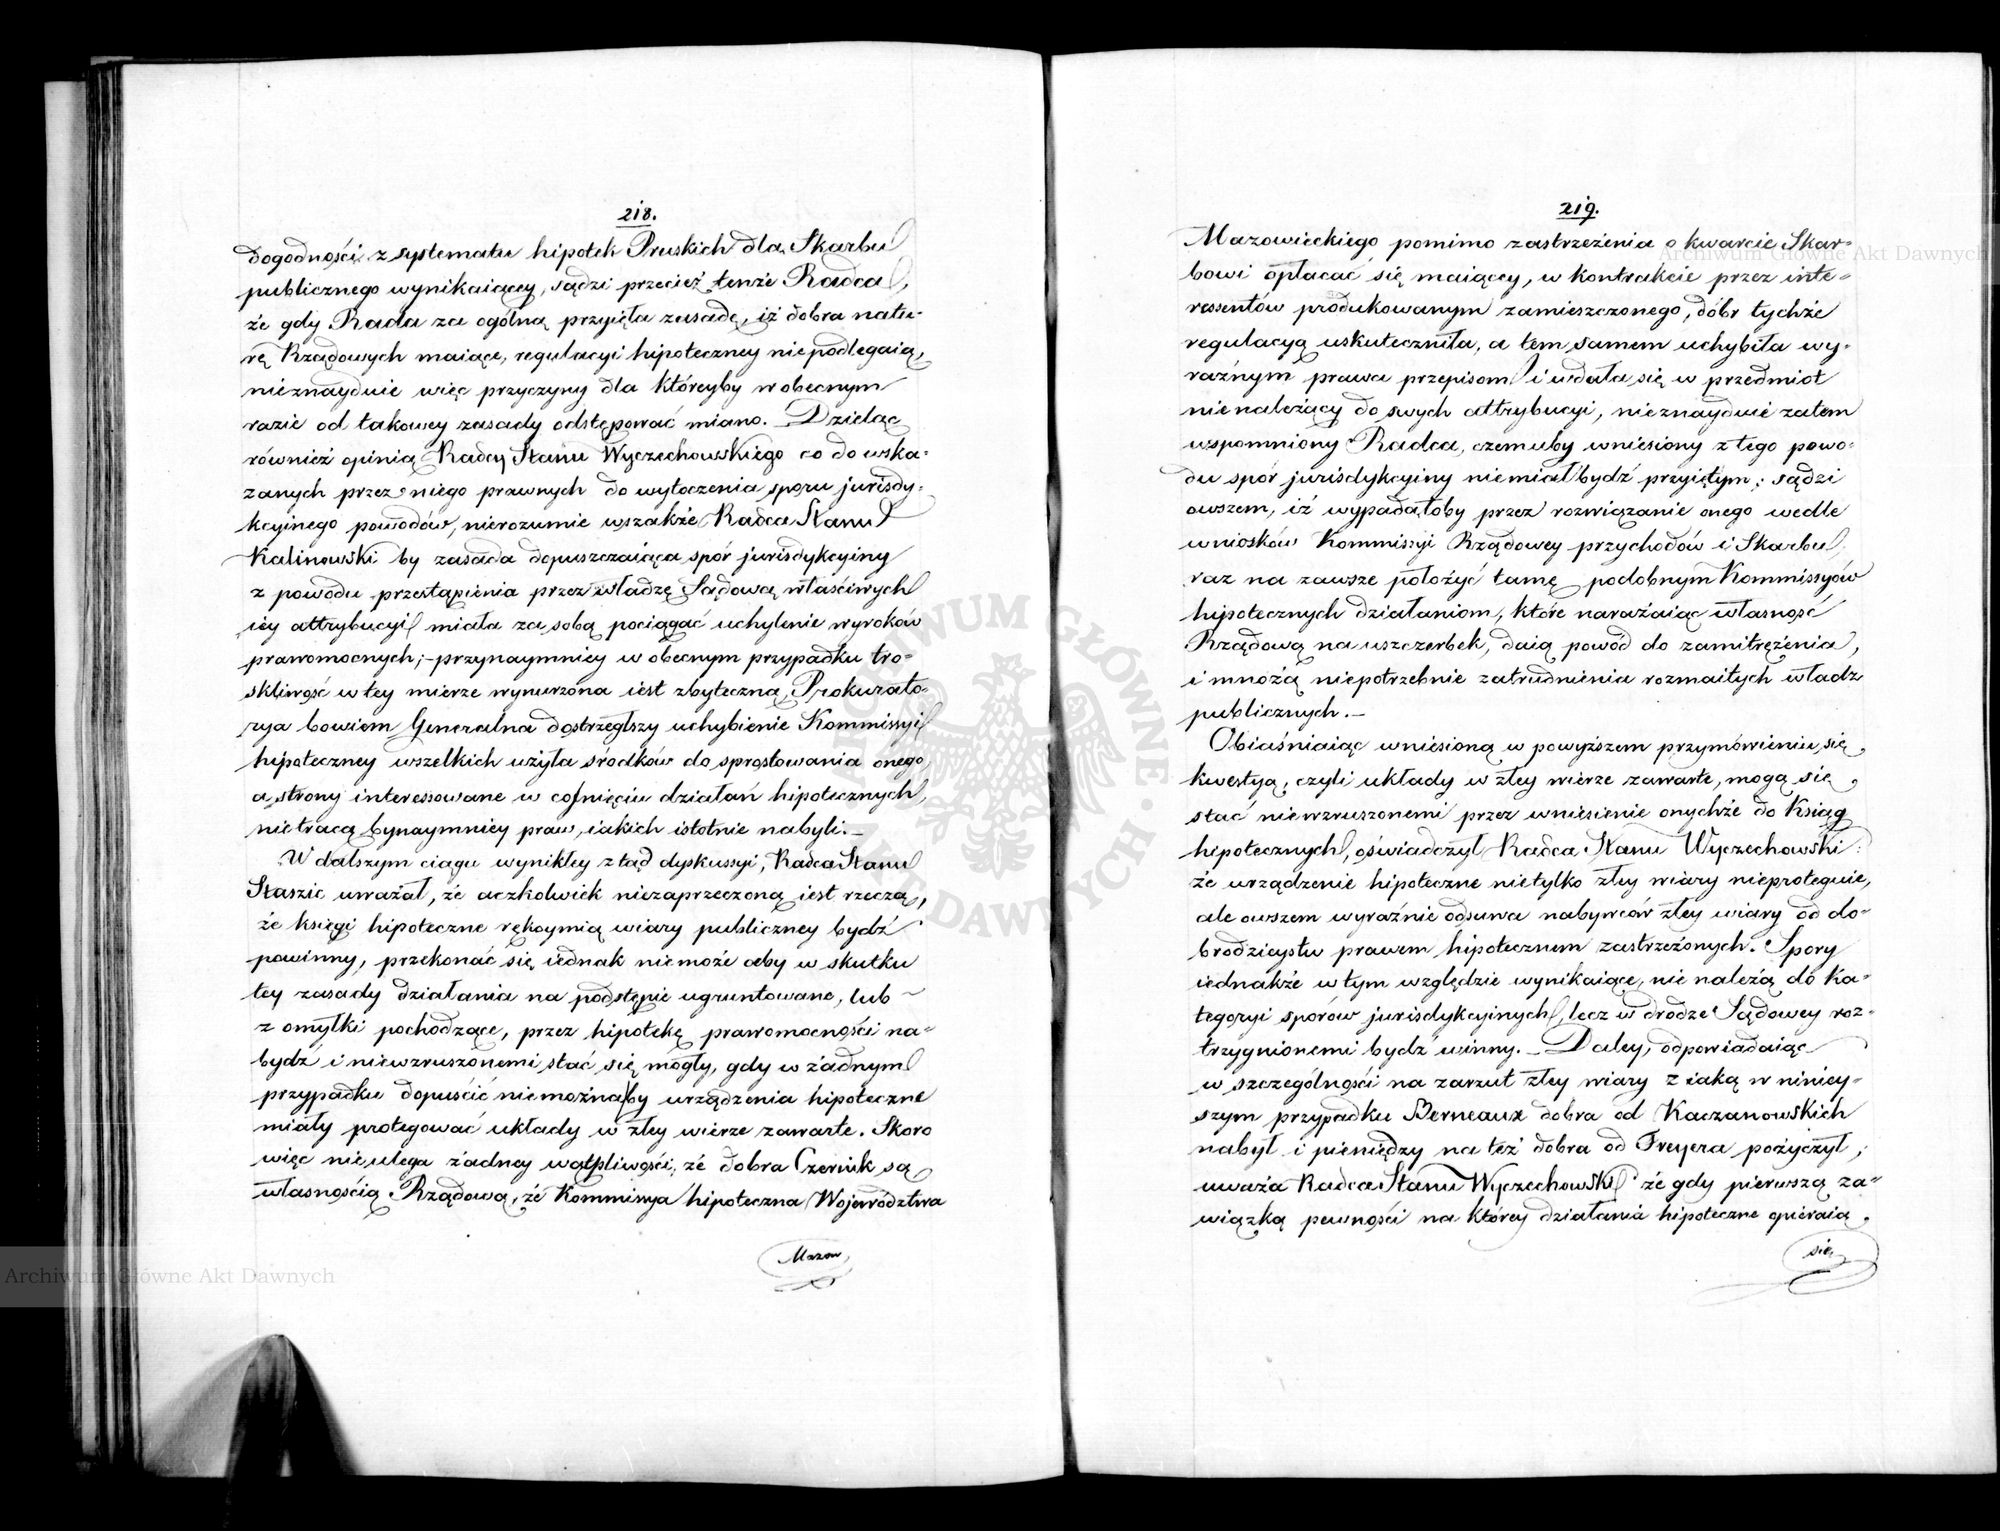 218.
dogodności z systematu hipotek Pruskich dla Skarbu
publicznego wynikaiącey, sądzi przecież tenże Radca,
że gdy Rada za ogólną przyięła zasadę, iż dobra natu-
rę Rządowych maiące, regulacyi hipoteczney niepodlegaią,
nieznayduie więc przyczyny dla któreyby w obecnym
razie od takowey zasady odstępować miano. Dzieląc
również opinią Radcy Stanu Wyczechowskiego co do wska-
zanych przez niego prawnych do wytoczenia sporu jurisdy-
kcyinego powodów, nierozumie wszakże Radca Stanu
Kalinowski by zasada dopuszczaiąca spór jurisdykcyiny
z powodu przestąpienia przez władzę Sądową właściwych
iey attrybucyi miała za sobą pociągać uchylenie wyroków
prawomocnych;- przynaymniey w obecnym przypadku tro-
skliwość w tey mierze wynurzona iest zbyteczną, Prokurato-
rya bowiem Generalna dostrzegłszy uchybienie Kommissyi
hipoteczney wszelkich użyła środków do sprostowania onego,
a strony interessowane w cofnięciu działań hipotecznych,
nie tracą bynaymniey praw, iakich istotnie nabyli.-
W dalszym ciągu wynikłey ztąd dyskussyi, Radca Stanu
Staszic uważał, że aczkolwiek niezaprzeczoną iest rzeczą,
że księgi hipoteczne rękoymią wiary publiczney bydź
powinny, przekonać się iednak nie może aby w skutku
tey zasady działania na podstępie ugruntowane, lub
z omyłki pochodzące, przez hipotekę prawomocności na-
bydź i niewzruszonemi stać się mogły, gdy w żadnym
przypadku dopuścić nie można by urządzenia hipoteczne
miały protegować układy w złey wierze zawarte. Skoro
więc nie ulega żadney wątpliwości, że dobra Czernik są
własnością Rządową, że Kommissya hipoteczna Województwa
Mazow
219.
Mazowieckiego pomimo zastrzeżenia o kwarcie Skar-
bowi opłacać się maiącey, w kontrakcie przez inte-
ressentów produkowanym zamieszczonego, dóbr tychże
regulacyą uskuteczniła, a tem samem uchybiła wy-
raźnym prawa przepisom i wdała się w przedmiot
nienależący do swych attrybucyi, nieznayduie zatem
wspomniony Radca, czemuby wniesiony z tego powo-
du spór jurisdykcyiny niemiał bydź przyiętym; sądzi
owszem, iż wypadałoby przez rozwiązanie onego wedle
wniosków Kommissyi Rządowey przychodów i Skarbu,
raz na zawsze położyć tamę podobnym Kommissyów
hipotecznych działaniom, które narażaiąc własność
Rządową na uszczerbek, daią powód do zamitrężenia,
i mnożą niepotrzebnie zatrudnienia rozmaitych władz
publicznych.-
Obiaśniaiąc wniesioną w powyższem przymówieniu się
kwestyą, czyli układy w złey wierze zawarte, mogą się
stać niewzruszonemi przez wniesienie onychże do Ksiąg
hipotecznych, oświadczył Radca Stanu Wyczechowski:
że urządzenie hipoteczne nietylko złey wiary nieproteguie,
ale owszem wyraźnie odsuwa nabywców złey wiary od do-
brodzieystw prawem hipotecznem zastrzeżonych. Spory
iednakże w tym względzie wynikaiące, nie należą do ka-
tegoryi sporów jurisdykcyinych, lecz w drodze Sądowey roz-
trzygnionemi bydź winny.- Daley, odpowiadaiąc
w szczególności na zarzut złey wiary z iaką w niniey-
szym przypadku Berneaux dobra od Kaczanowskich
nabył i pieniędzy na też dobra od Freyera pożyczył;
uważa Radca Stanu Wyczechowski że gdy pierwszą za-
wiązką pewności na którey działania hipoteczne opieraią
się,